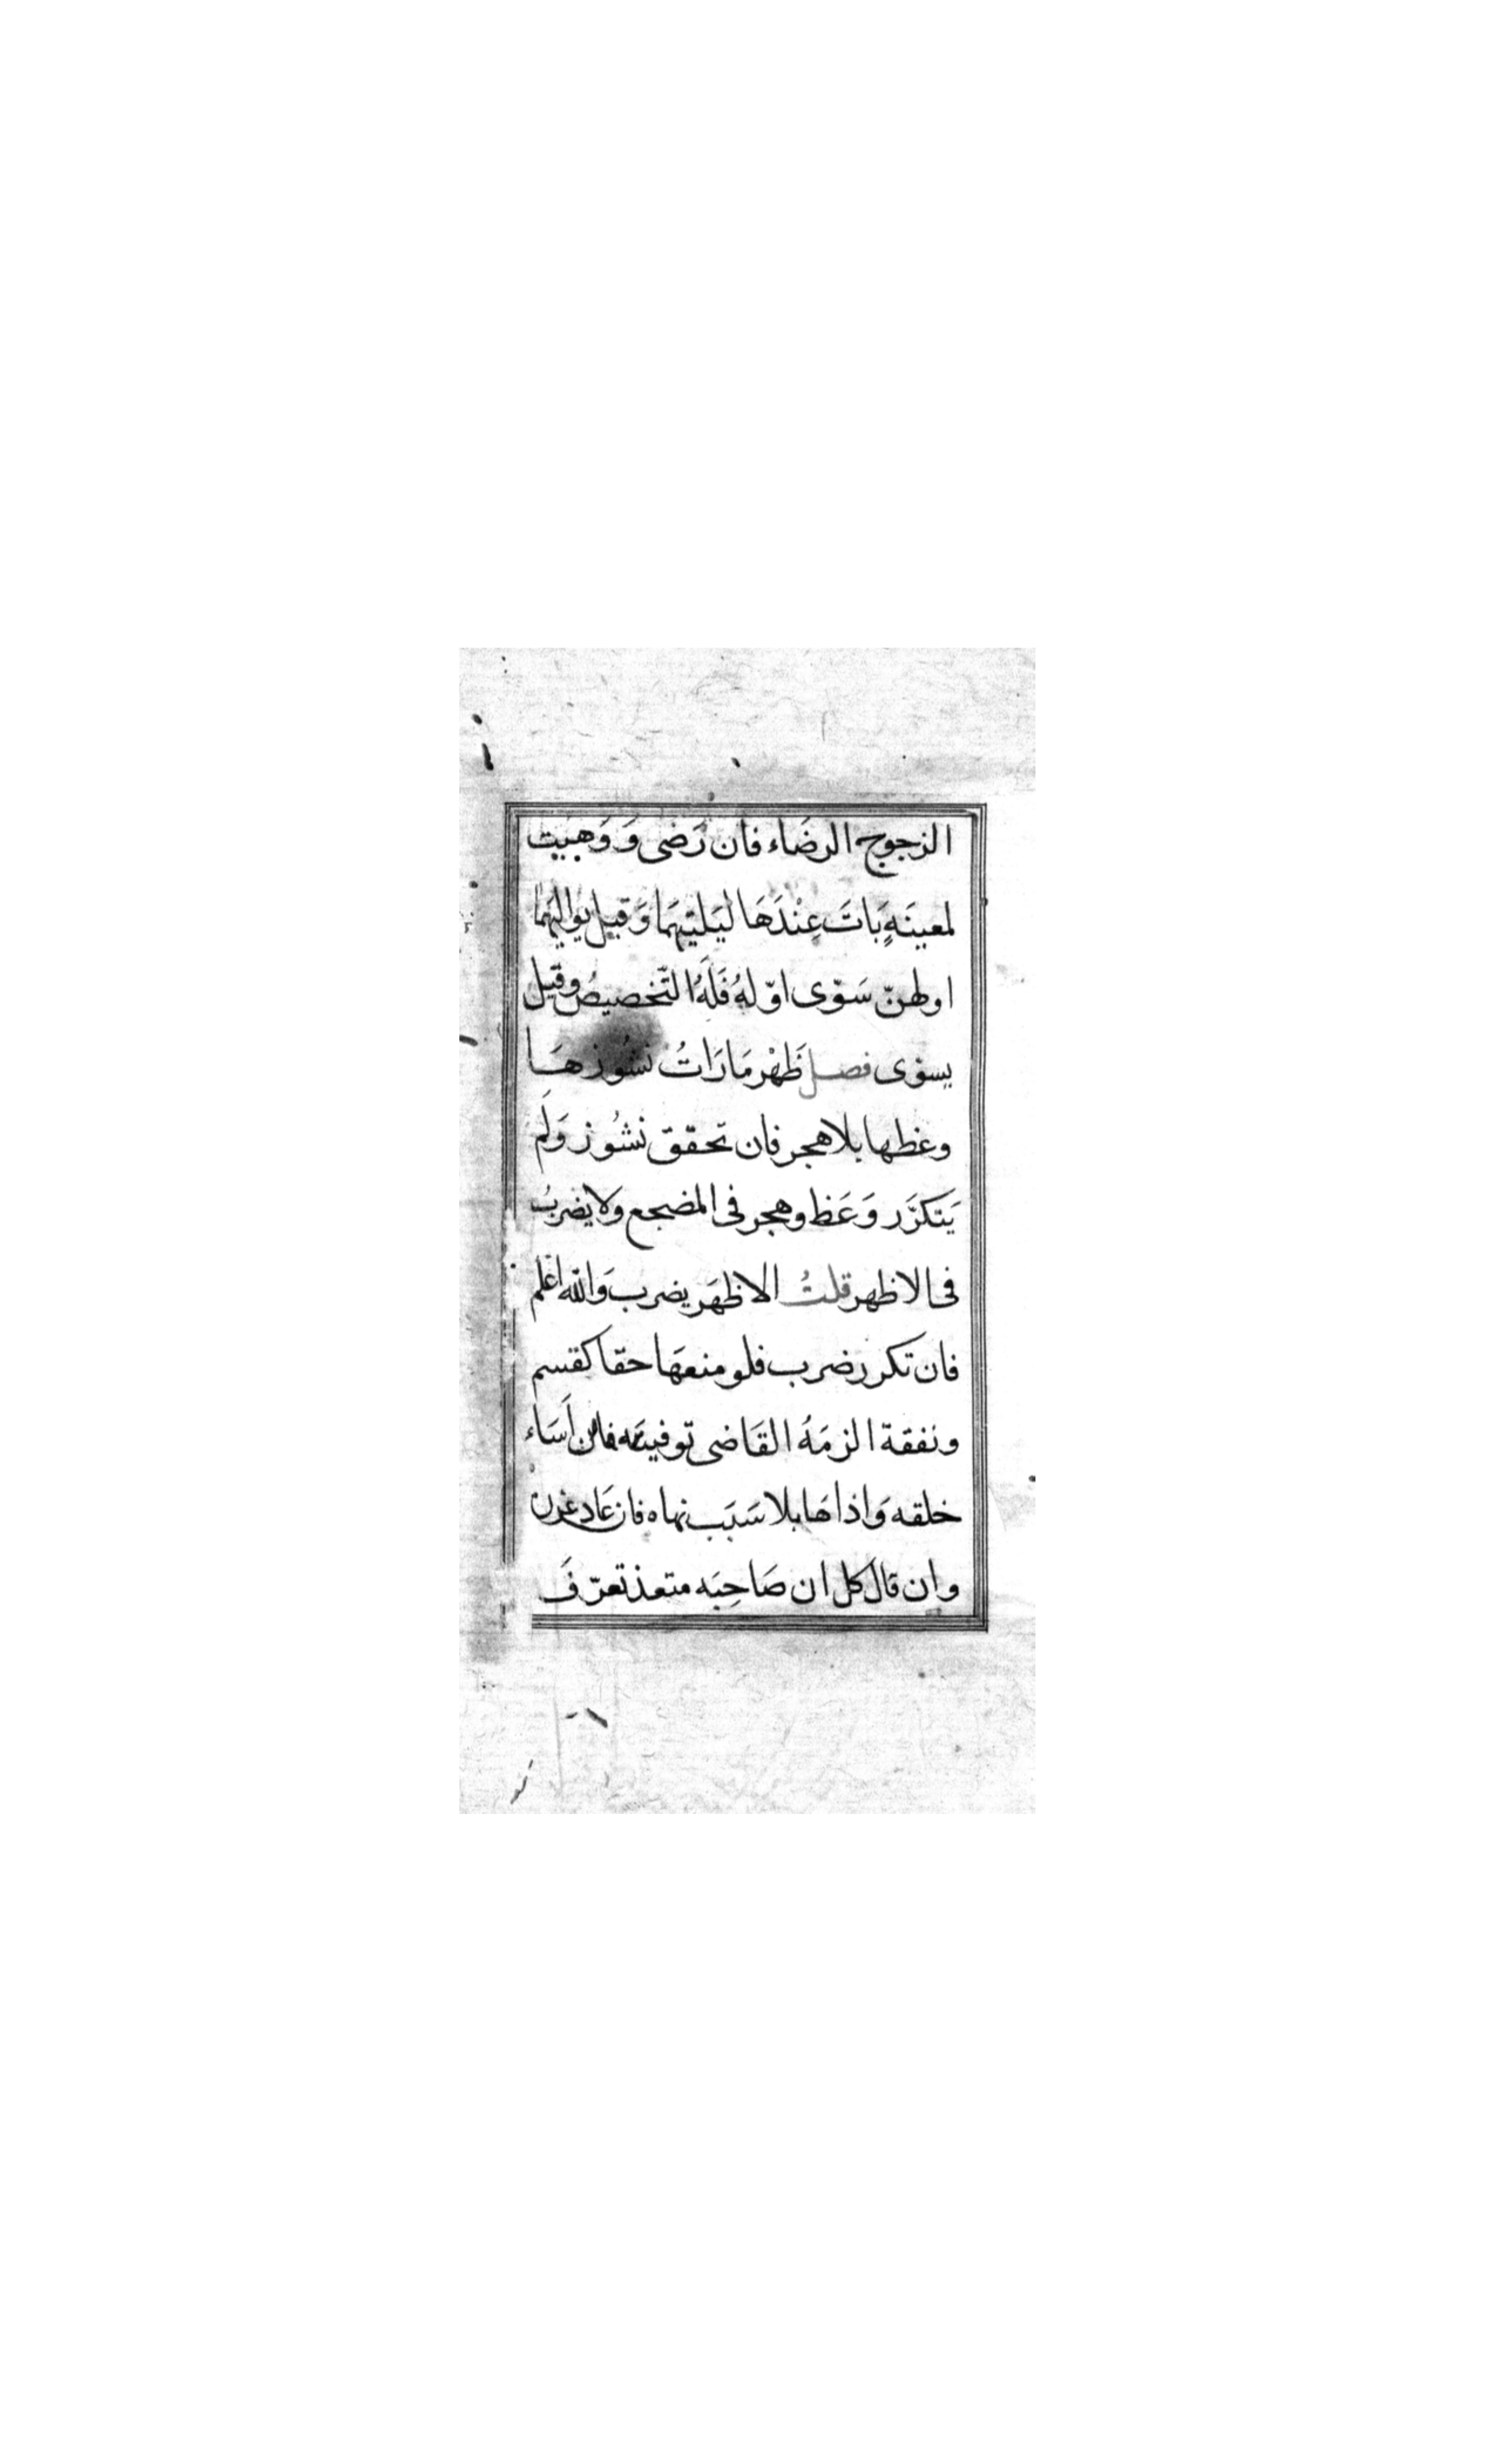 الزجوج الرضَاء فان رَضى وَ وَهبَيت
لمعينَةٍ بَاتَ عِنْدَهَا ليَلتيَهِمَا وَقيل يواليهَما
اولهنّ سَوّى اوّ لهُ فَلَهُ التّخصيصُ وقيل
يسوّى فصل ظَهْر مَارَاتُ نشُوزهَا
وعظها بلا هجر فان تحقق نشُوز وَلَم
يَتكرَّر وَعَظ وهجر فى المضجع ولا يضربُ
فى الاظهر قلتُ الاظهَر يضرب وَالله اعْلم
فان تكرر ضرب فلو منعهَا حقا كقسم
ونفقة الزمَهُ القَاضى توفيتَه فان أسَاء
خلقه وَاذاهَا بلا سَبَب نهاه فان عَاد عزره
وان قال كل ان صَاحِبَه متعذ تعرّفَ